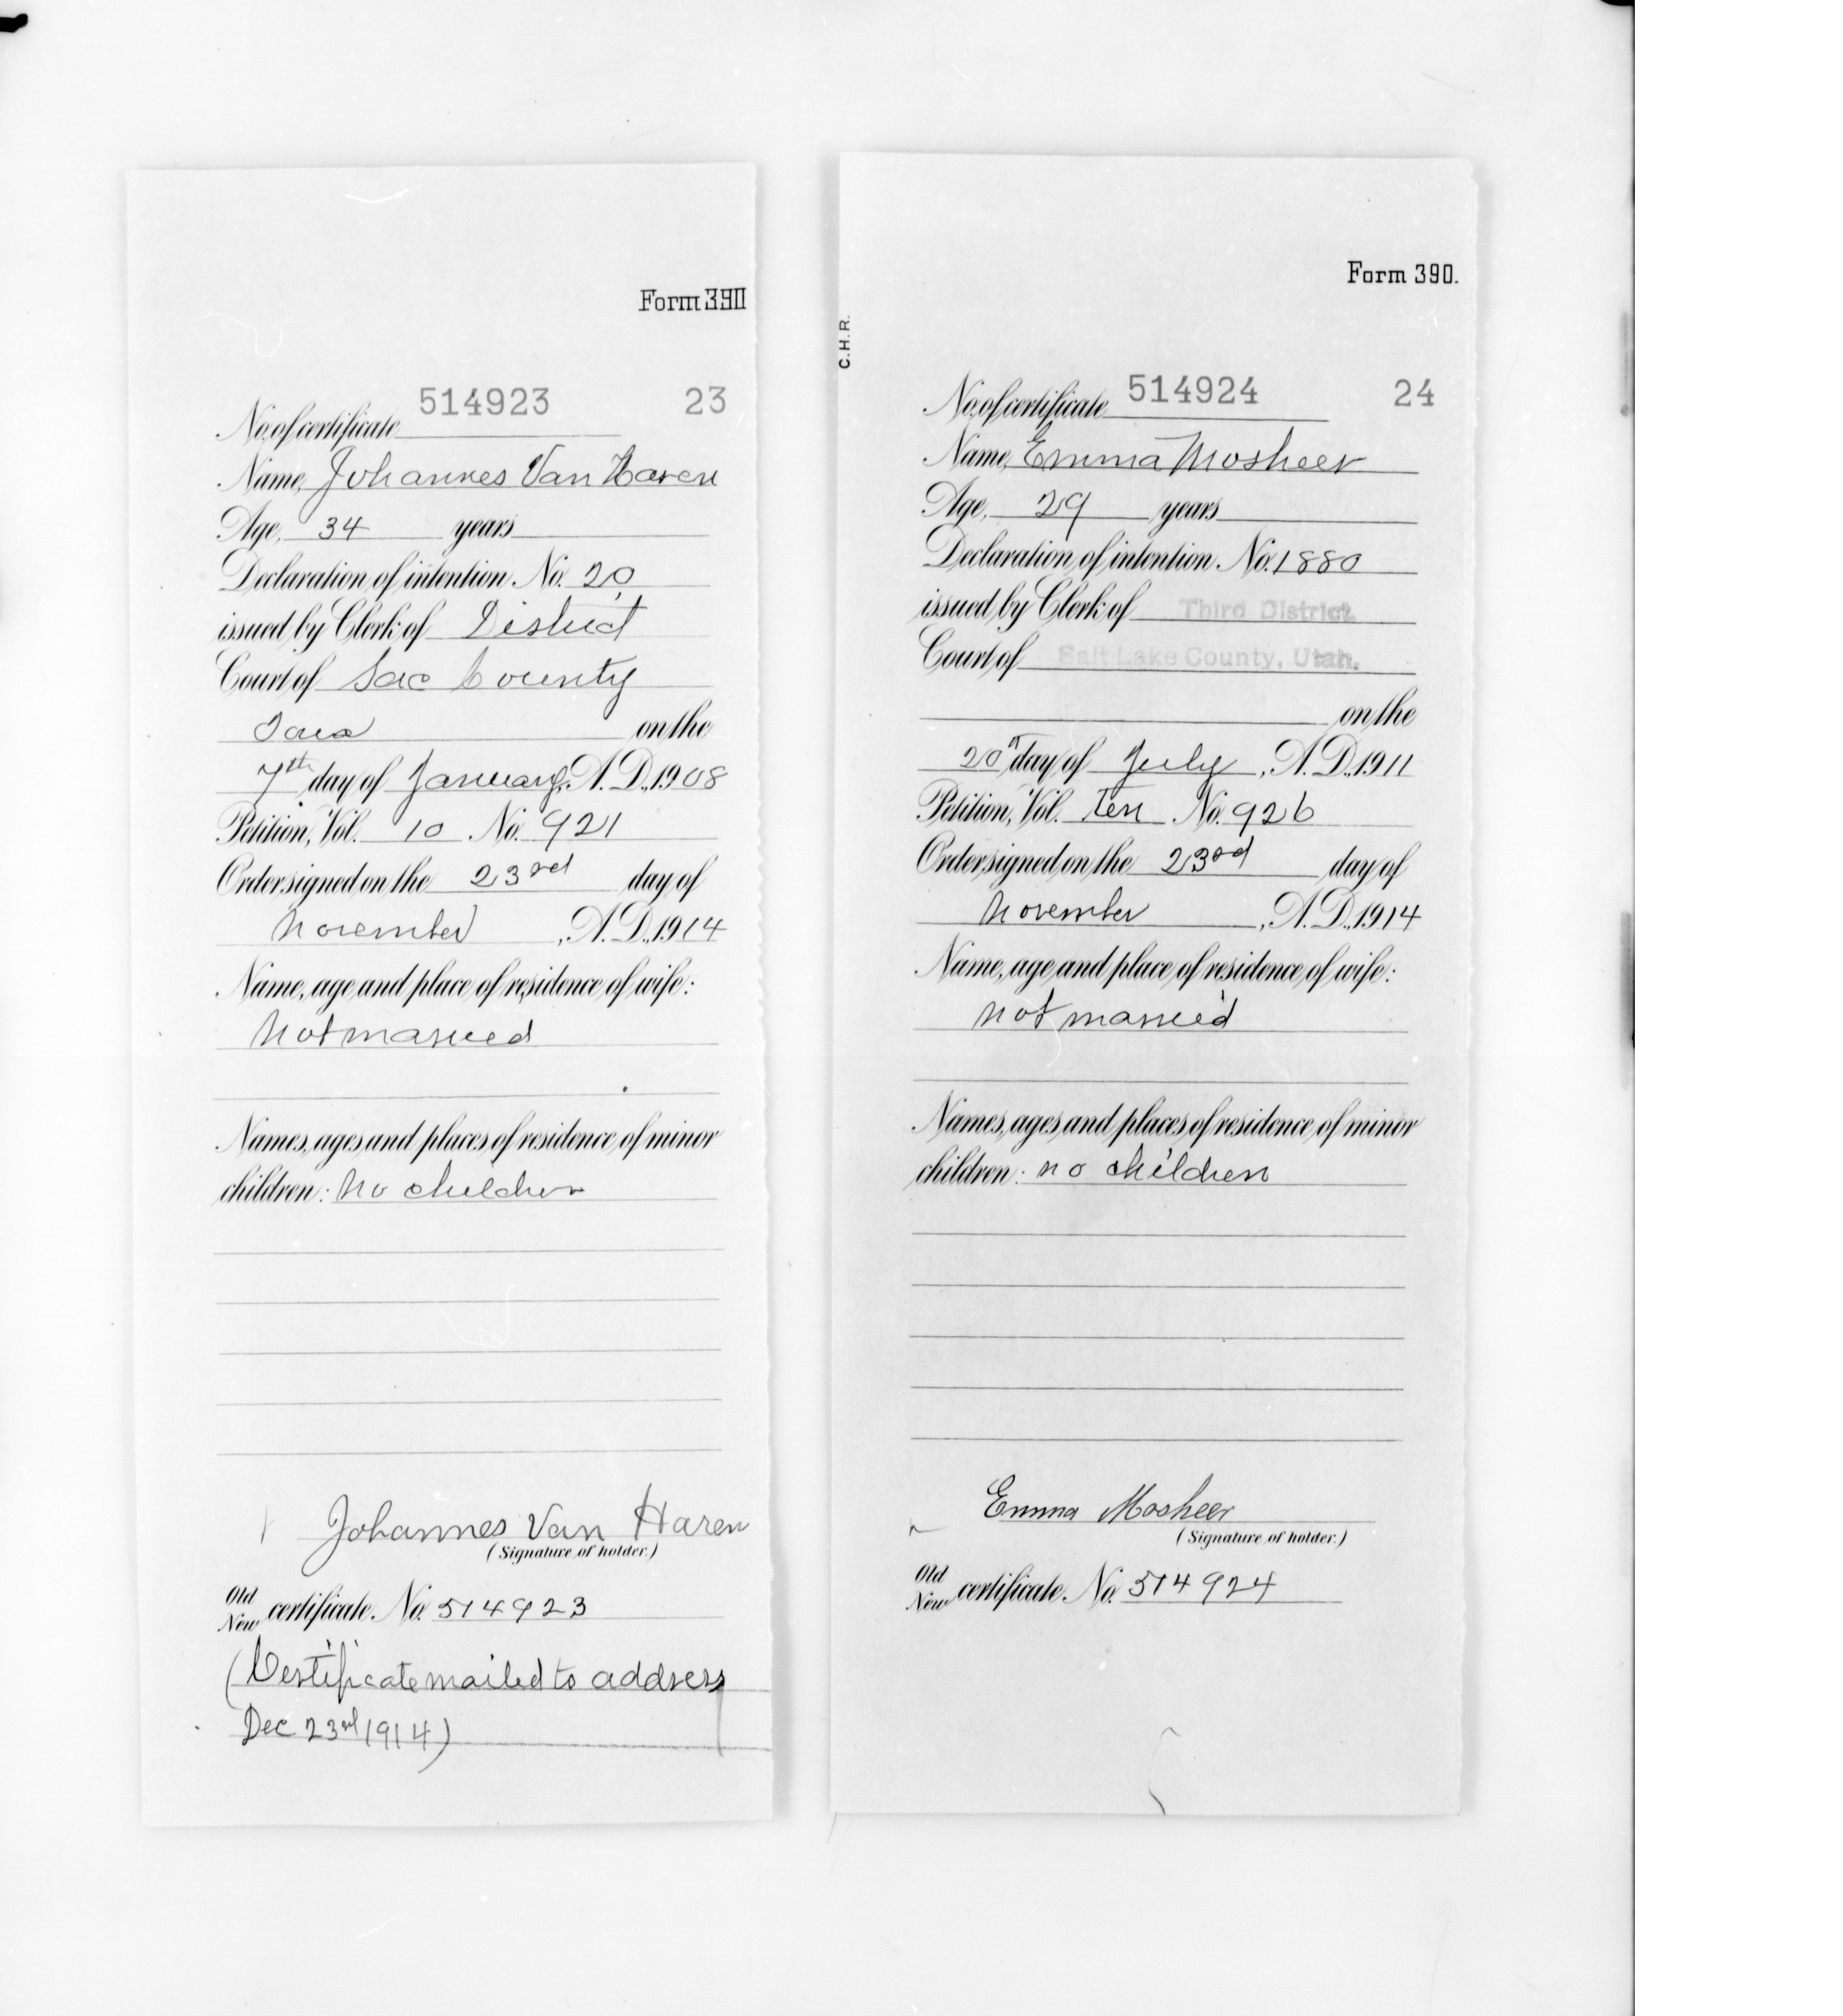 Form 390
514923 23
No. of certificate
Name, Johannes Van Haren
Age, 34 years
Declaration of intention No. 20,
issued by Clerk of District
Court of Sac County
Iowa on the
7th day of January, A.D., 1908
Petition, Vol. 10 No. 921
Order signed on the 23rd day of
November, A.D., 1914
Name, age and place of residence of wife:
Not married
Names, ages and places of residence of minor
children: No children
Johannes Van Haren
(Signature of holder.)
Old
New certificate No. 514923
(Certificate mailed to address
Dec 23rd 1914)
Form 390.
C.H.R.
514924 24
No. of certificate
Name, Emma Mosheer
Age, 29 years
Declaration of intention No. 1880
issued by Clerk of Third District
Court of Salt Lake County, Utah.
on the
20th day of July, A.D., 1911
Petition, Vol. Ten No. 926
Order signed on the 23rd day of
November, A.D., 1914
Name, age and place of residence of wife:
not married
Names, ages and places of residence of minor
children: no children
Emma Mosheer
(Signature of holder.)
Old
New certificate No. 514924